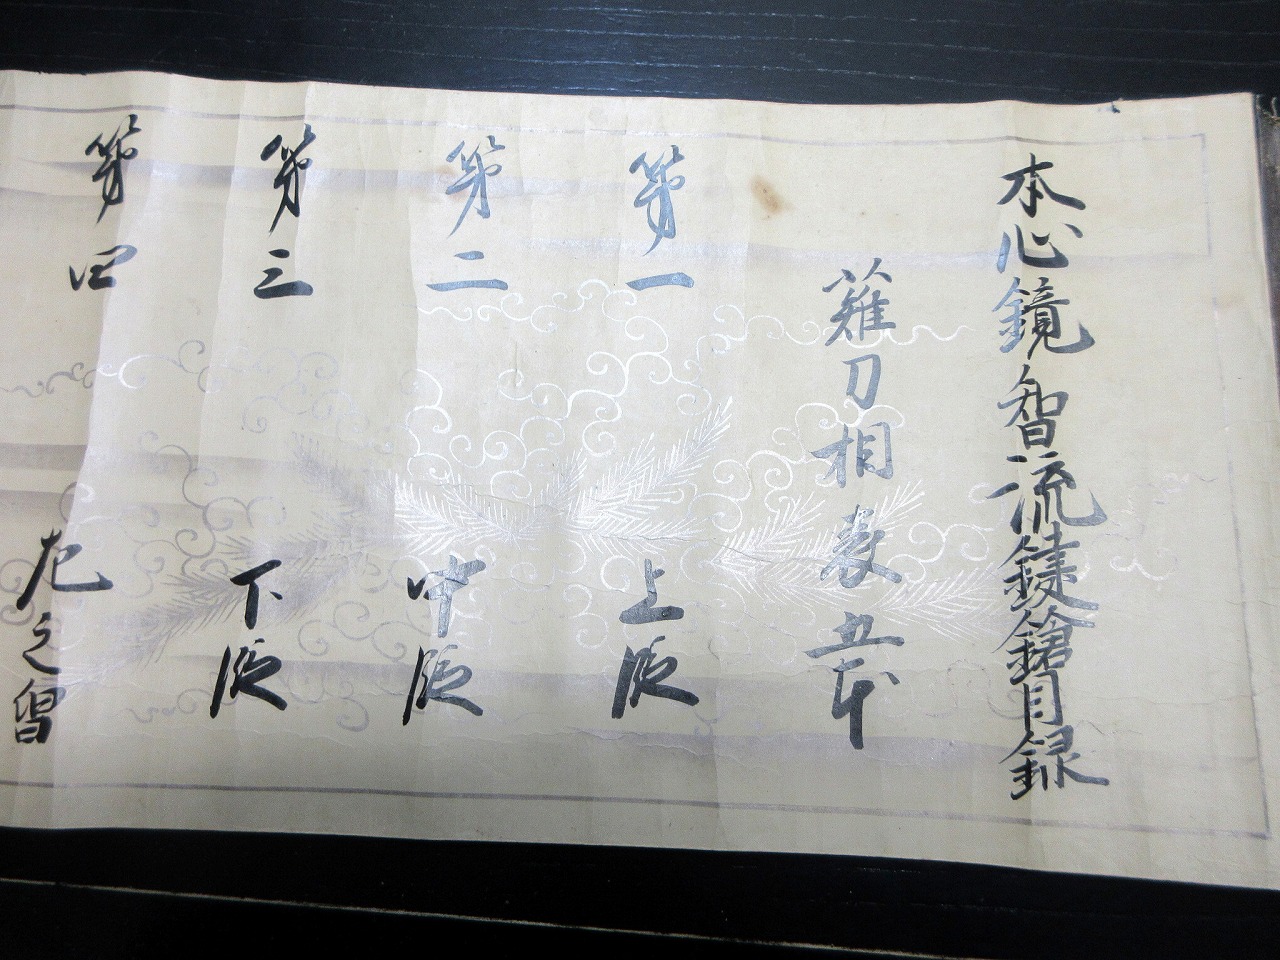 本心鏡智流鍵鎗目録
薙刀相表五本
第一 上段
第二 中段
第三 下段
第四 左之